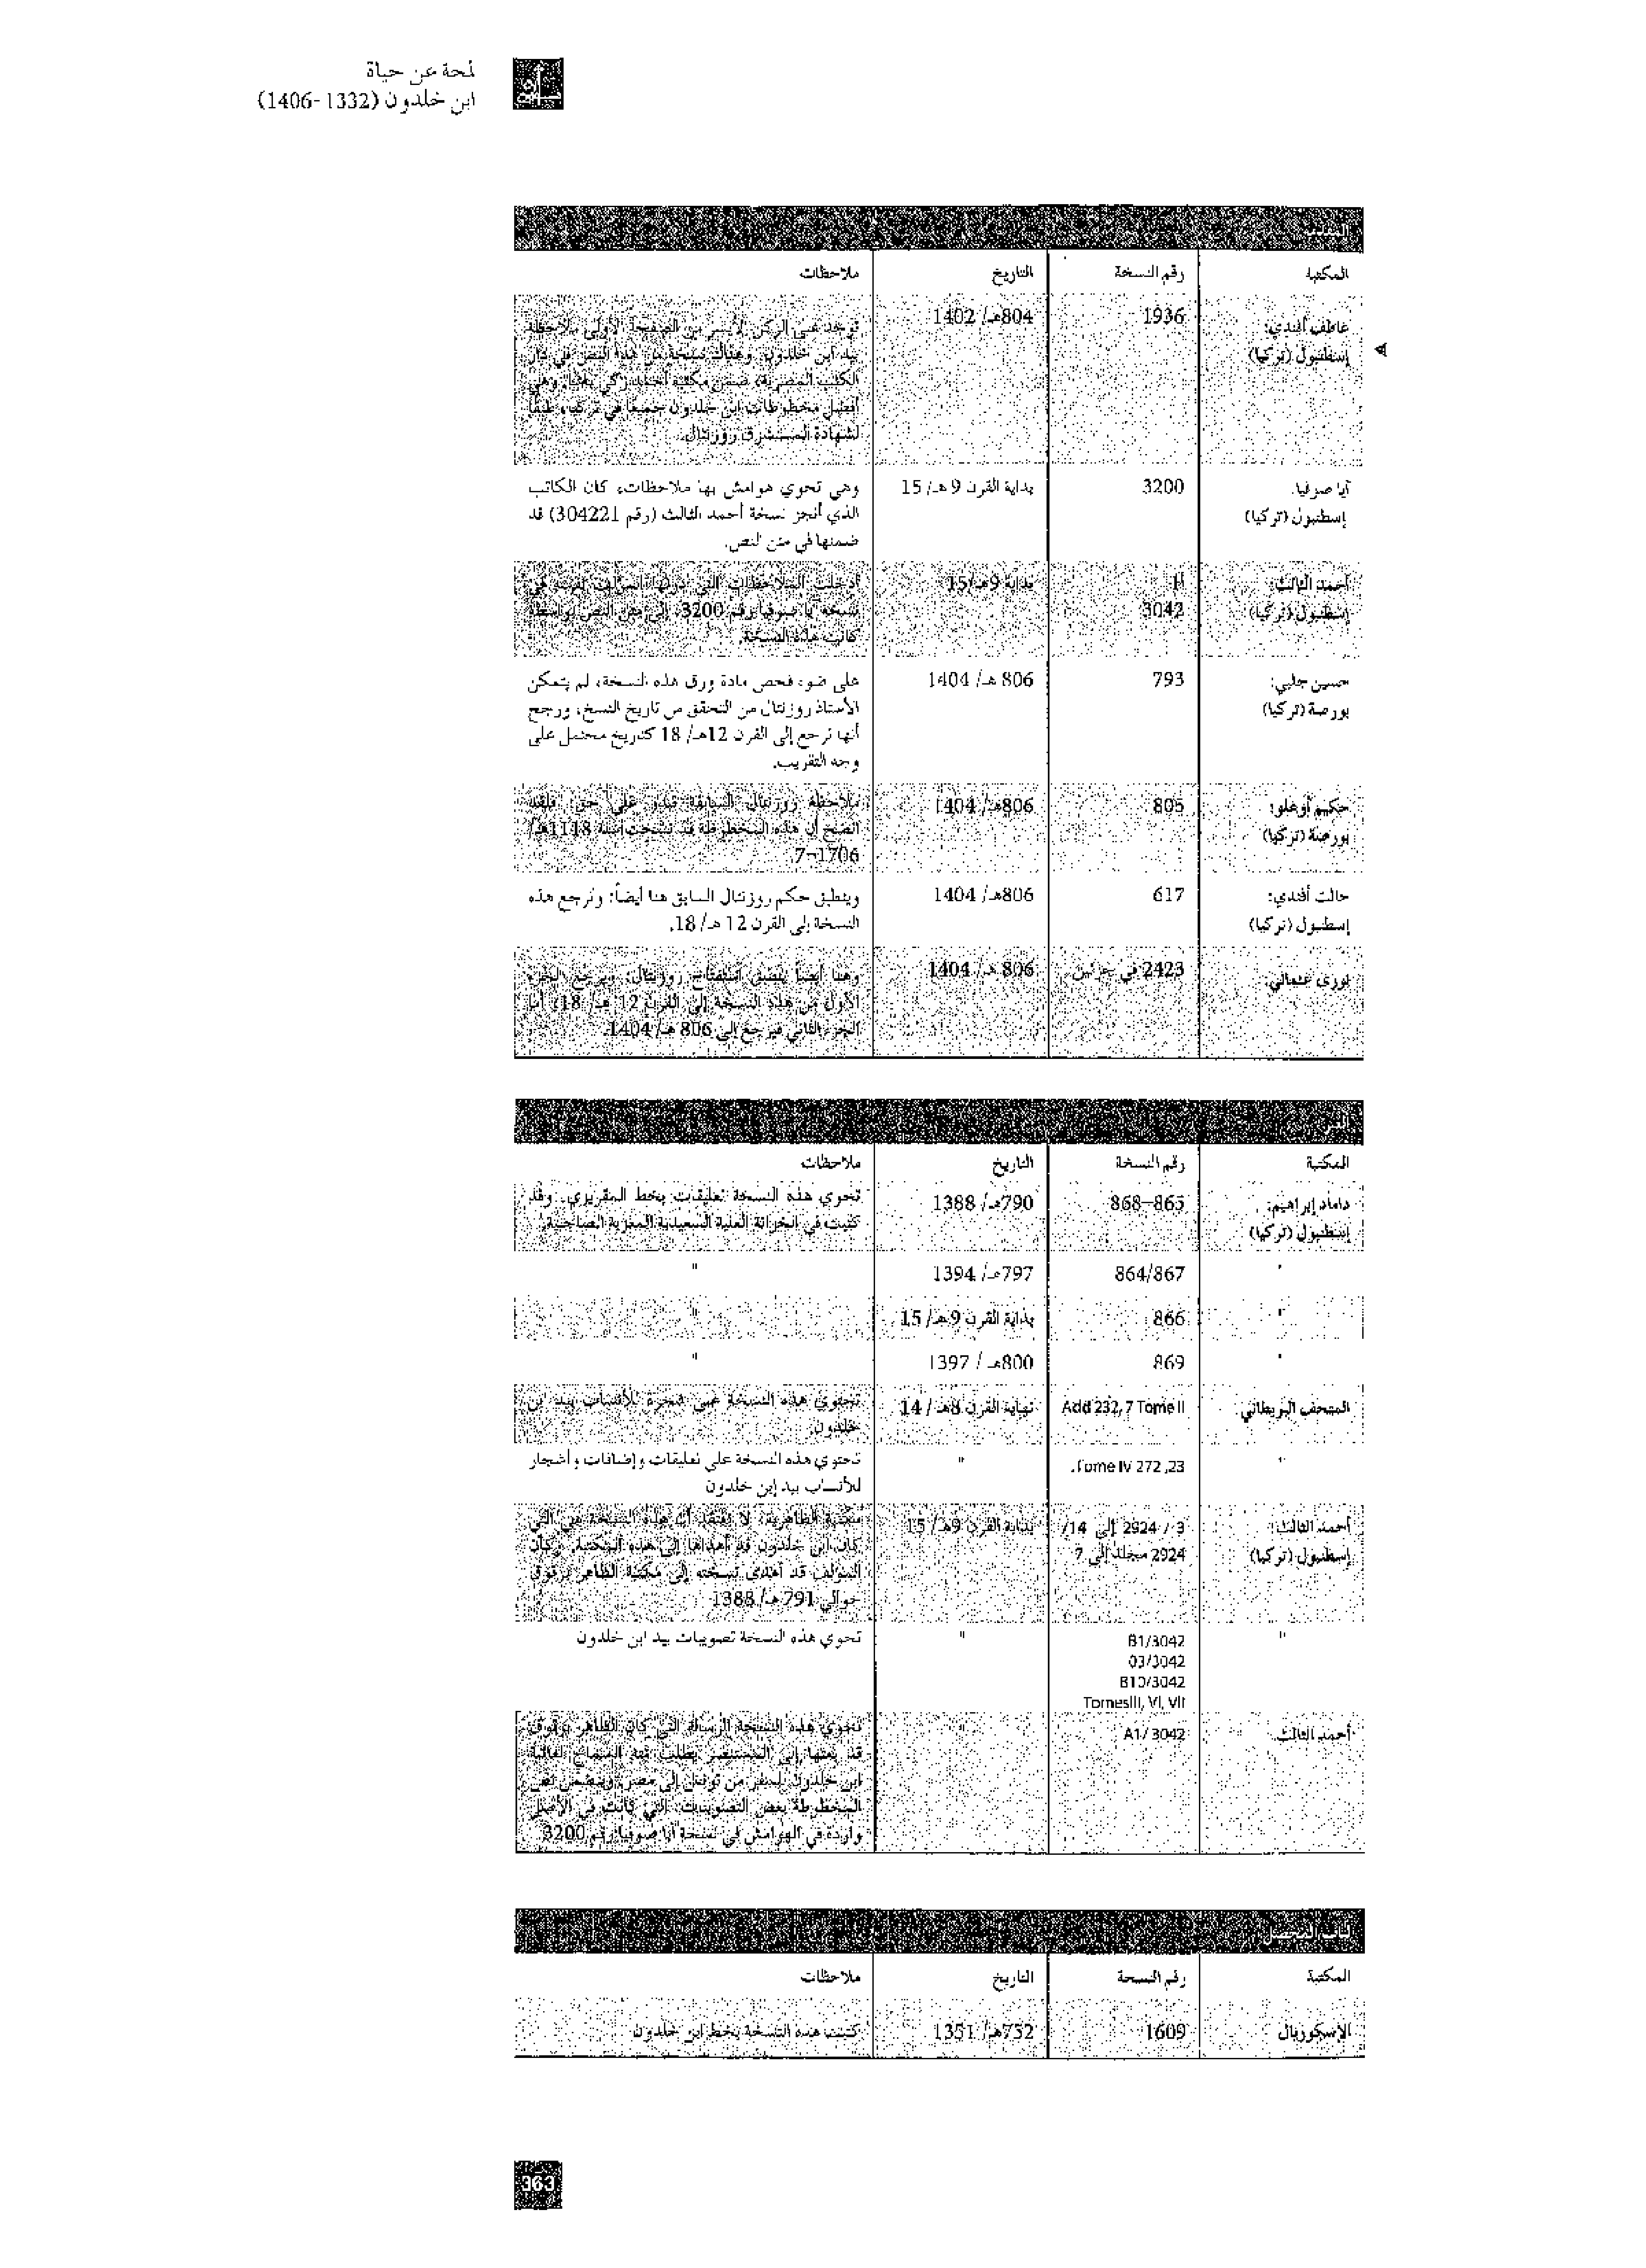 لمحة عن حياة
ابن خلدون (1332-1406)
المكتبة رقم النسخة التاريخ ملاحظات
عاطف أفندي: 1936 804هـ/ 1402
إسطنبول (تركيا)
توجد على الركن الأيسر من الصفحة الأولى ملاحظة
بيد ابن خلدون. وهناك نسخة من هذا النص في دار
الكتب المصرية، ضمن مكتبة أحمد زكي باشا. وهي
أفضل مخطوطات ابن خلدون جميعا في تركيا، طبقا
لشهادة المستشرق روزنتال.
آيا صوفيا. 3200 بداية القرن 9 هـ/ 15
إسطنبول (تركيا)
وهي تحوي هوامش بها ملاحظات، كان الكاتب
الذي أنجز نسخة أحمد الثالث (رقم 304221) قد
ضمنها في متن النص.
أحمد الثالث: 3042 بداية 9هـ/15
إسطنبول (تركيا)
أدخلت الملاحظات التي المؤلف بنفسه في
نسخة آيا صوفيا رقم 3200، إلى متن النص بواسطة
كاتب هذه النسخة.
حسين جلبي: 793 806 هـ/ 1404
بورصة (تركيا)
على ضوء فحص مادة ورق هذه النسخة، لم يتمكن
الأستاذ روزنتال من التحقق من تاريخ النسخ، ورجح
أنها ترجع إلى القرن 12هـ/ 18 كتاريخ محتمل على
وجه التقريب.
حكيم أوغلو: 805 806هـ/ 1404
بورصة (تركيا)
ملاحظة روزنتال السابقة تبدو على حق: فلقد
اتضح أن هذه المخطوطة قد نسخت سنة 1118هـ/
1706-7
حالت أفندي: 617 806هـ/ 1404
إسطنبول (تركيا)
وينطبق حكم روزنتال السابق هنا أيضاً: وترجع هذه
النسخة إلى القرن 12 هـ/ 18.
نوري عثماني: 2423 في جزئين 806 هـ/ 1404
وهنا أيضاً ينطبق روزنتال: ويرجع الجزء
الأول من هذه النسخة إلى القرن 12 هـ/ 18، أما
الجزء الثاني فيرجع إلى 806 هـ/ 1404.
المكتبة رقم النسخة التاريخ ملاحظات
داماد إبراهيم: 865-868 790هـ/ 1388
إسطنبول (تركيا)
تحوي هذه النسخة تعليقات بخط المقريزي. وقد
كتبت في الخزانة العلية السعيدية المعزية الصاحبية.
" 864/867 797هـ/ 1394 "
" 866 بداية القرن 9هـ/ 15 "
" 869 800هـ / 1397 "
المتحف البريطاني Add 232, 7 Tome II نهاية القرن 8هـ/ 14
تحتوي هذه النسخة على شجرة للأنساب بيد ابن
خلدون.
" 23, 272 Tome IV. "
تحتوي هذه النسخة على تعليقات وإضافات وأشجار
للأنساب بيد إبن خلدون
أحمد الثالث: 3 / 2924 إلى 14/ بداية القرن 9هـ/ 15
إسطنبول (تركيا) 2924 مجلد إلى 7
مكتبة الظاهرية، لا يعتقد أن هذه النسخة هي التي
كان ابن خلدون قد أهداها إلى هذه المكتبة. وكان
المؤلف قد أهدى نسخته إلى مكتبة الظاهر برقوق
حوالي 791 هـ/ 1388
" B1/3042 " تحوي هذه النسخة تصويبات بيد ابن خلدون
03/3042
B10/3042
TomesIII, VI, VII
أحمد الثالث A1/ 3042 "
تحوي هذه النسخة الرسالة التي كان الظاهر برقوق
قد بعثها إلى يطلب منه السماح لعائلة
ابن خلدون بالسفر من تونس إلى مصر. ويتضمن نص
المخطوطة بعض التصويبات التي كانت في الأصل
واردة في الهوامش في نسخة آيا صوفيا رقم 3200
لباب المحصل
المكتبة رقم النسخة التاريخ ملاحظات
الإسكوريال 1609 752هـ/ 1351 كتبت هذه النسخة بخط ابن خلدون
363